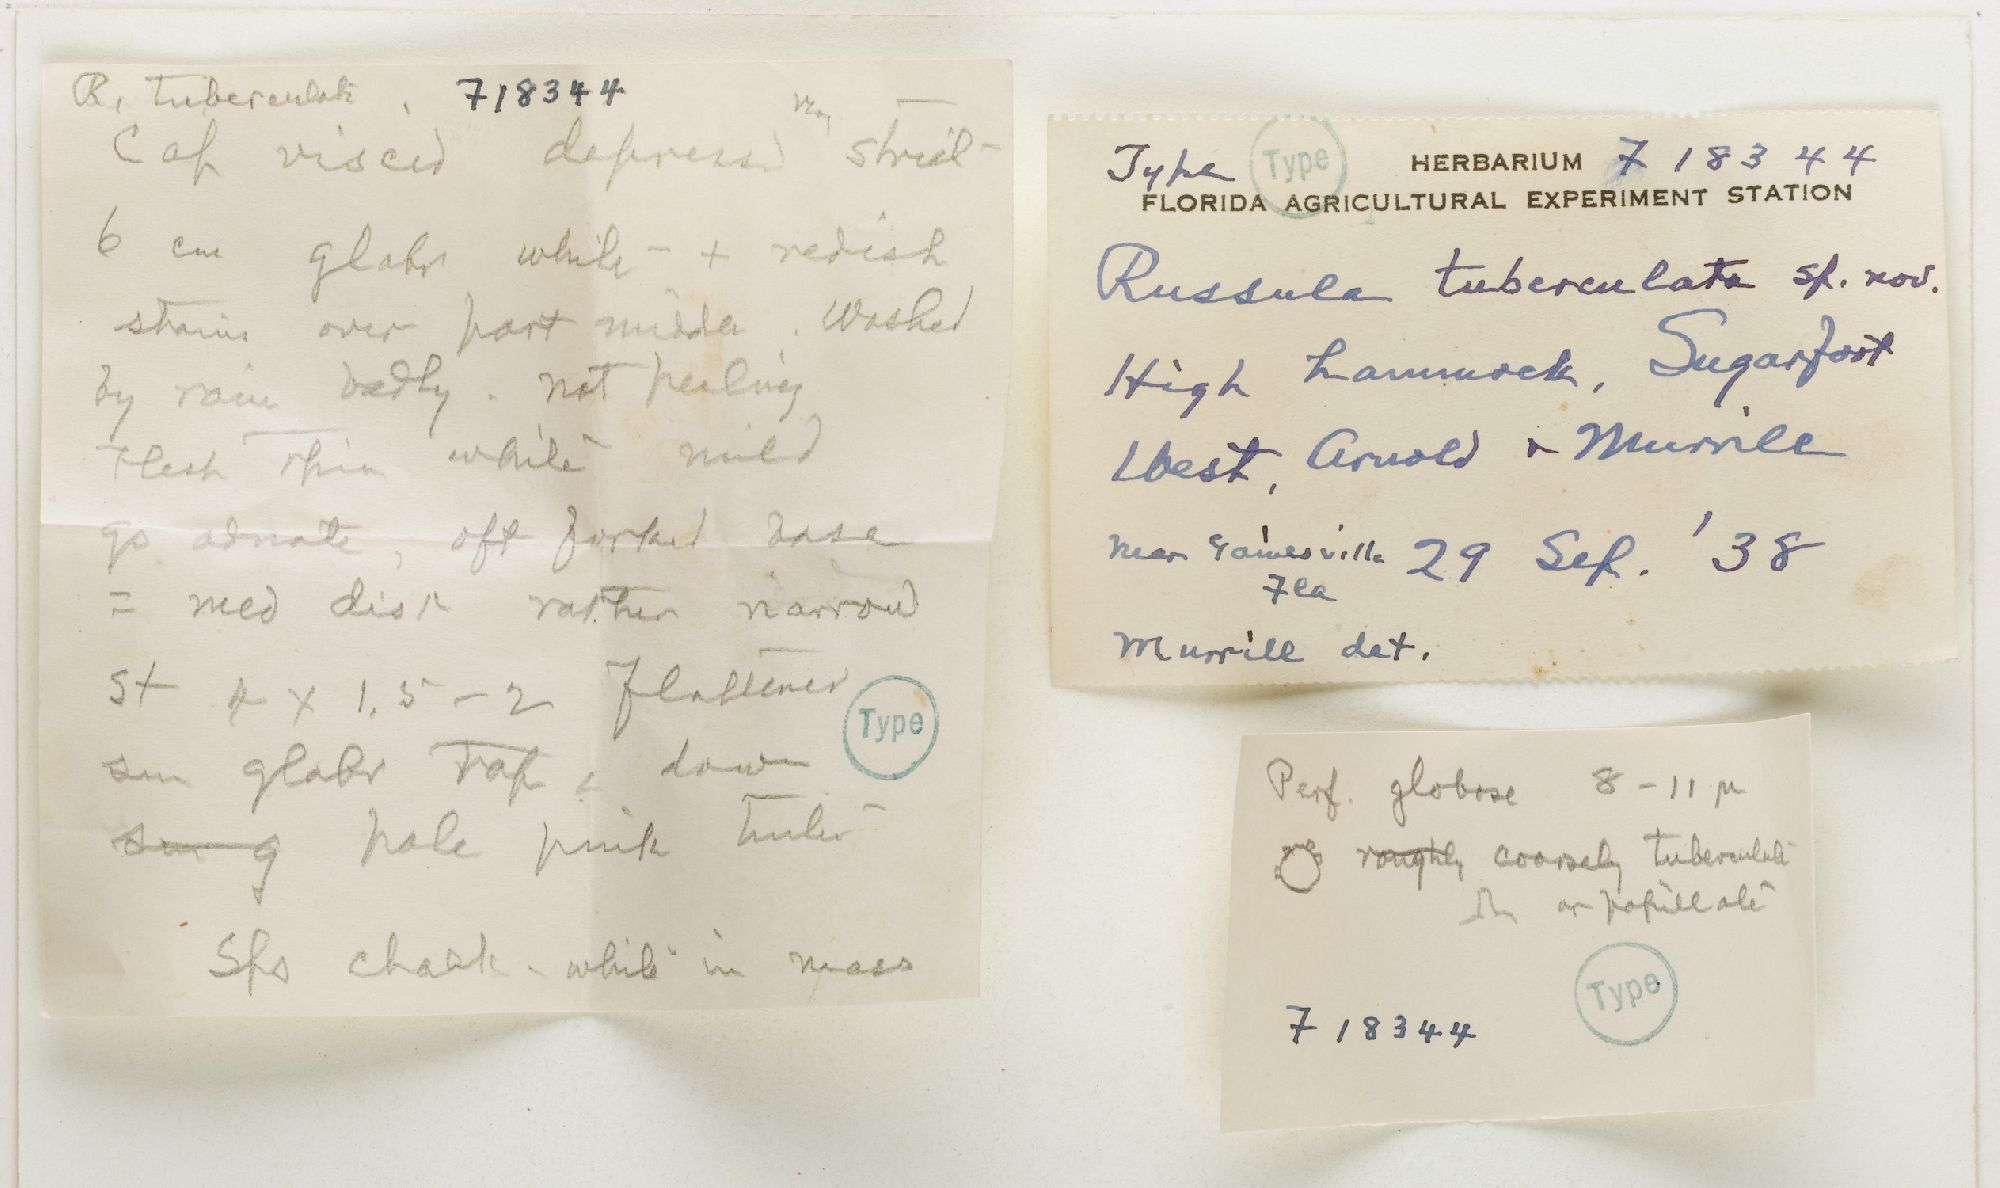 R. tuberculata. F18344
Cap viscid depressed mar striat
6 cm glabr white + redish
stains over part middle. Washed
by rain badly. not peeling
Flesh thin white mild
gs adnate, oft forked base
= med dist rather narrow
St 4 x 1.5 - 2 flattened
sm glabr tap down
pale pink tinted
Type
Sps chalk-white in mass
Type Type HERBARIUM F 18344
FLORIDA AGRICULTURAL EXPERIMENT STATION
Russula tuberculata sp. nov.
High hammock, Sugarfoot
West, Arnold & Murrill
near Gainesville Fla 29 Sep. '38
Murrill det.
Perf. globose 8-11 µ
roughly coarsely tuberculate
or papillate
Type
F 18344